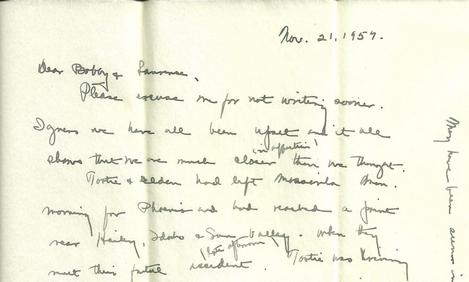 Nov. 21, 1957.
Dear Bobby &
Please excuse me for not writing sooner.
I guess we have all been upset and it all
in affection
shows that we are much closer than we thought.
Tortie & had left Mon.
morning for Phoenix and had reached a point
near Hailey, Idaho & Sun Valley. When they
late afternoon
met this fatal accident. Tortie was driving
May have been